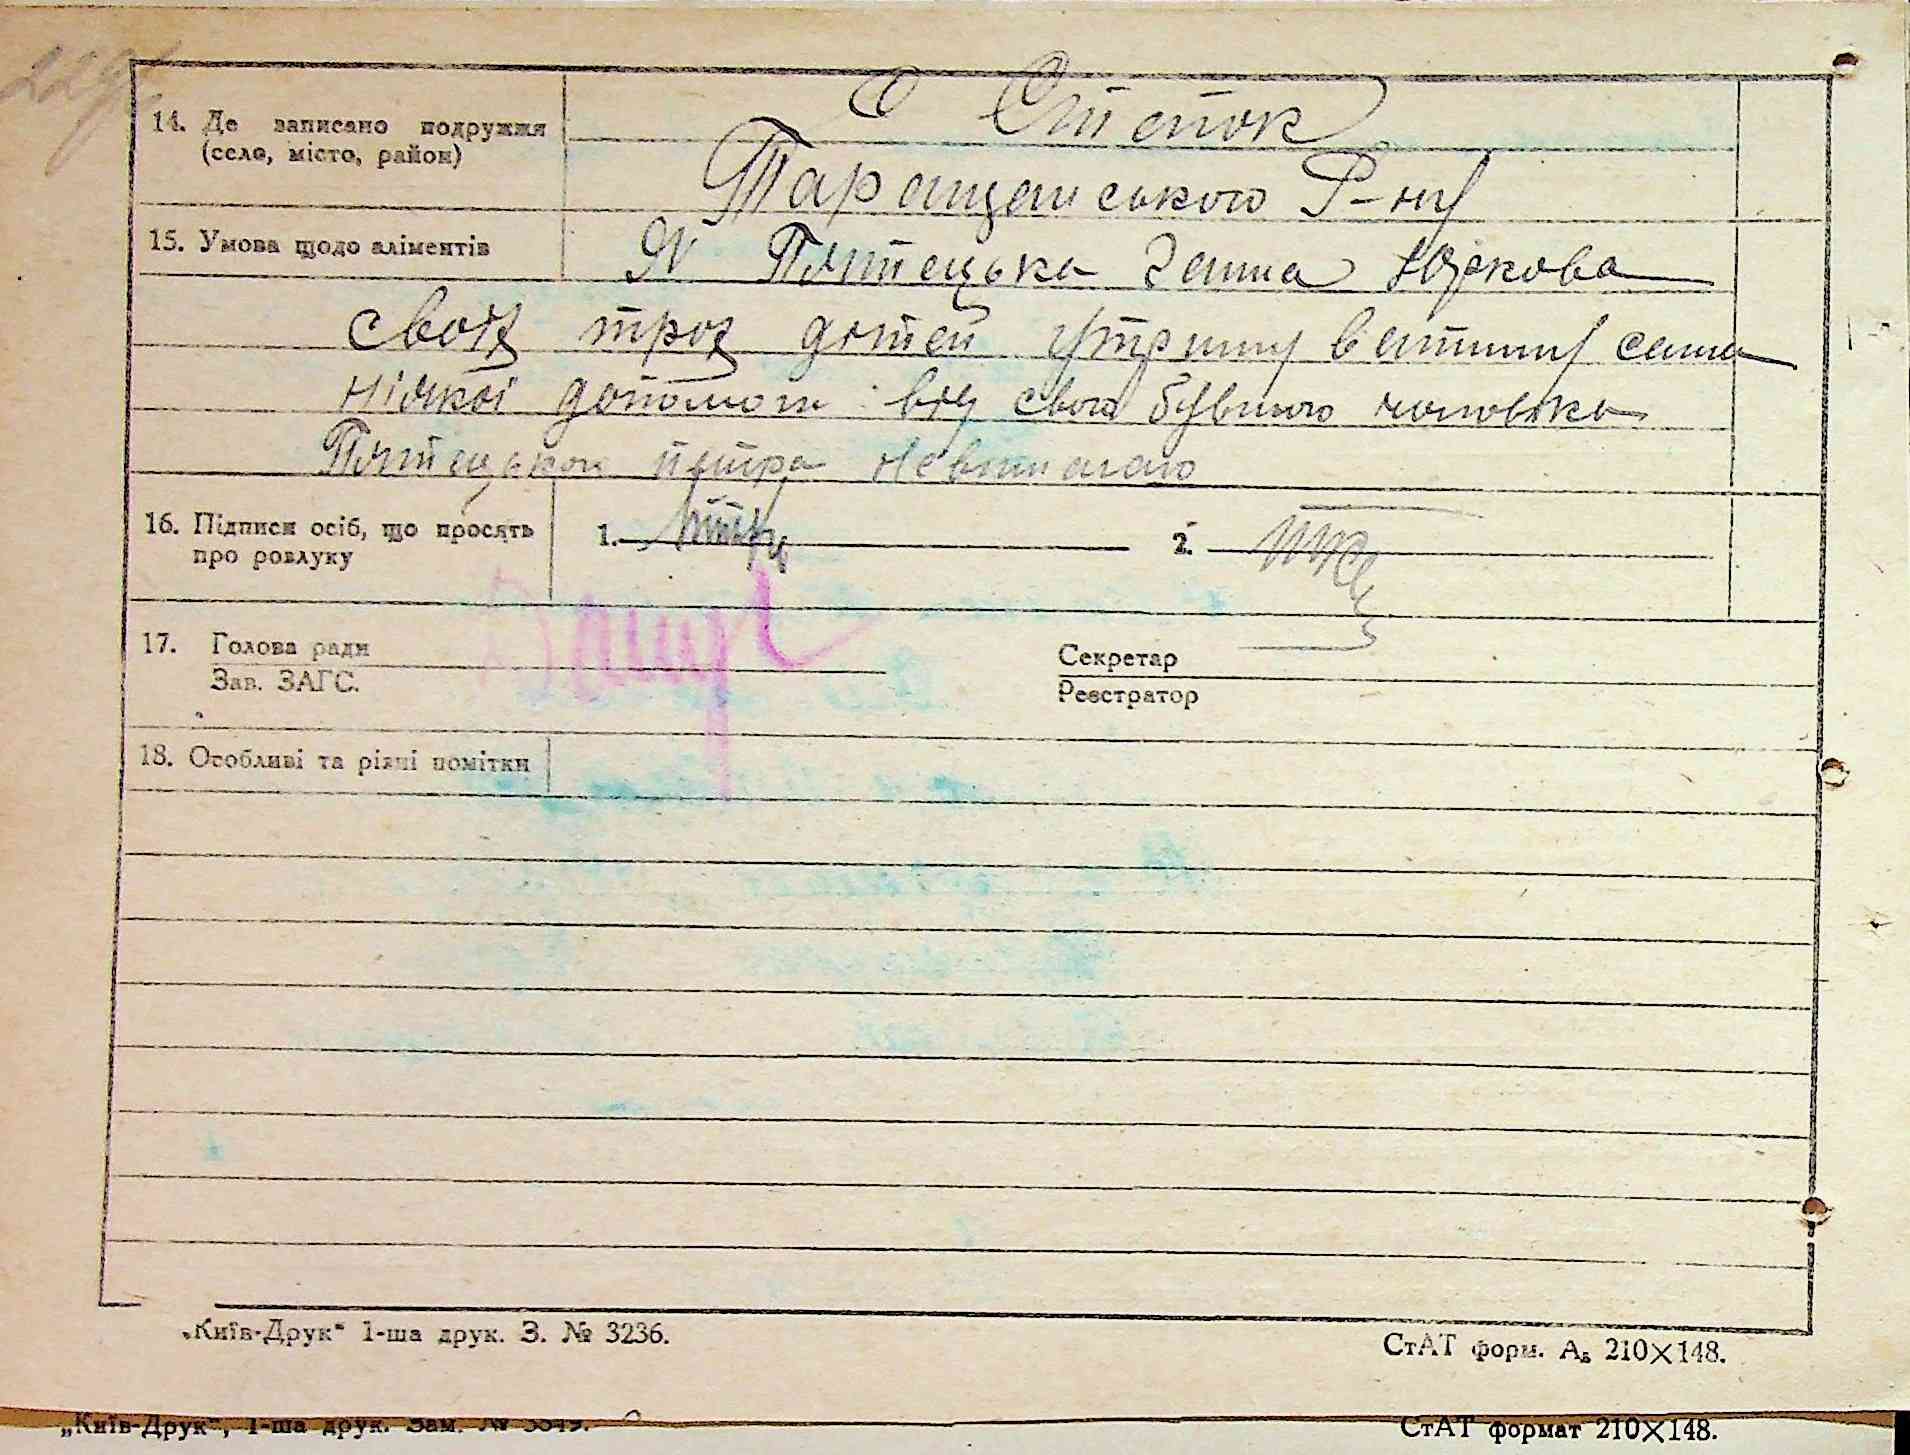 14. Де записано подружжя
(село, місто, район)
С Степок
Таращанського Р-ну
15. Умова щодо аліментів
Я Пятецька Ганна Юркова
своїх трох дітей утриму ватиму сама
ніякої допомоги від свого бувшого чоловіка
Пятецького петра невимагаю
16. Підписи осіб, що просять
про розлуку
1.
2.
17. Голова ради
Зав. ЗАГС.
Секретар
Реєстратор
18. Особливі та різні помітки
„Київ-Друк“ 1-ша друк. З. № 3236.
СтАТ форм. А₅ 210×148.
„Київ-Друк“, 1-ша друк. Зам. №
СтАТ формат 210×148.